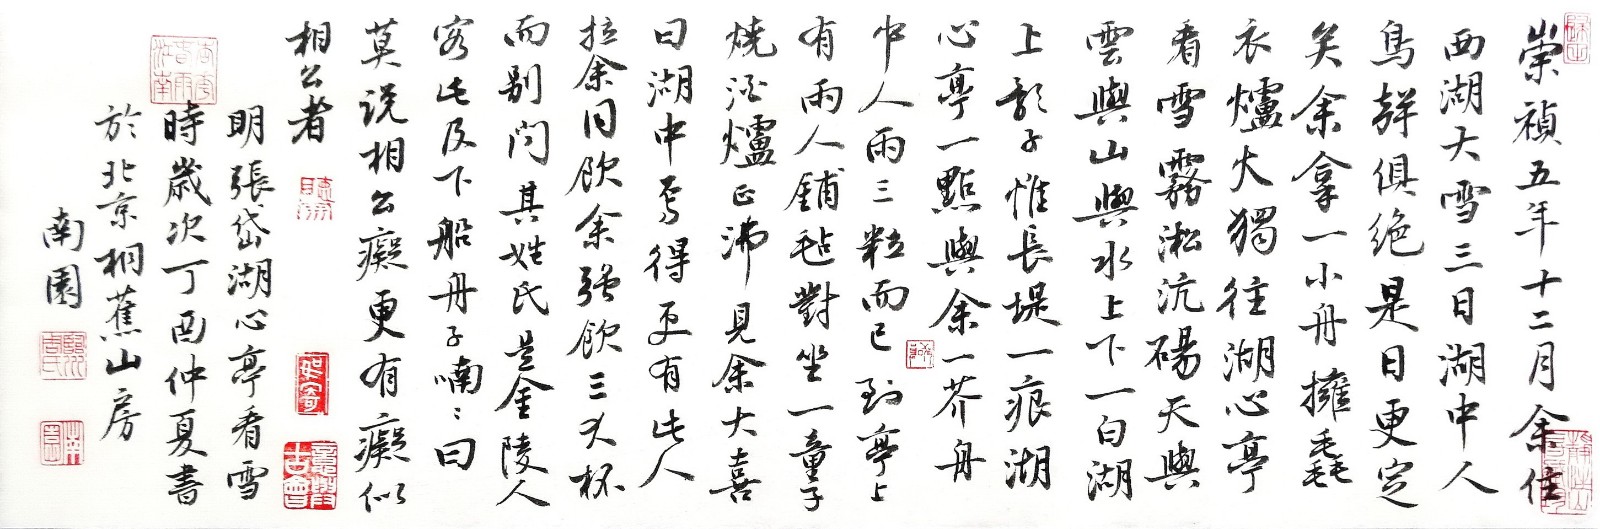 崇禎五年十二月余住
西湖大雪三日湖中人
鳥聲俱绝是日更定
矣余拿一小舟擁毳
衣爐火獨往湖心亭
看雪霧淞沆碭天與
雲與山與水上下一白湖
上影子惟長堤一痕湖
心亭一點與余一芥舟
中人兩三粒而已到亭上
有兩人鋪毡對坐一童子
燒酒爐正沸見余大喜
曰湖中焉得更有此人
拉余同飲余強飲三大杯
而别問其姓氏是金陵人
客此及下船舟子喃〻曰
莫说相公癡更有癡似
相公者
明張岱湖心亭看雪
時歲次丁酉仲夏書
於北京桐蕉山房
南園